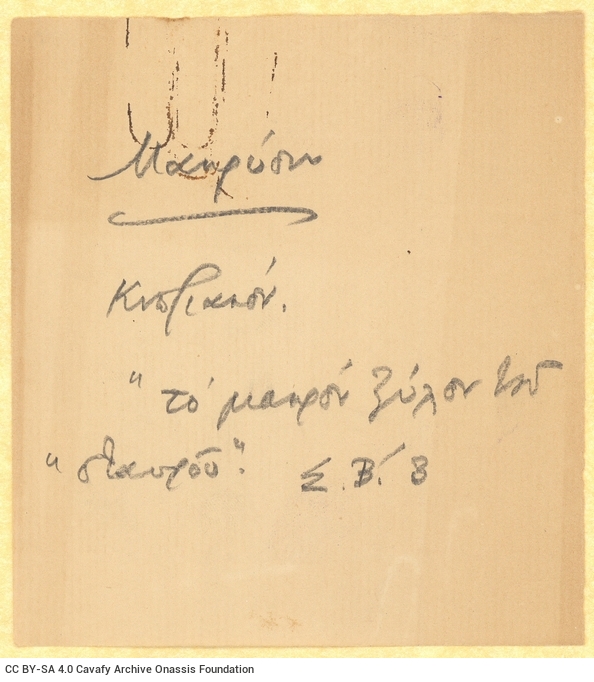 Μακρύσιν
Κυπριακόν.
"τό μακρόν ξύλον τοῦ
"σταυροῦ". Σ. Β΄. 3
CC BY-SA 4.0 Cavafy Archive Onassis Foundation